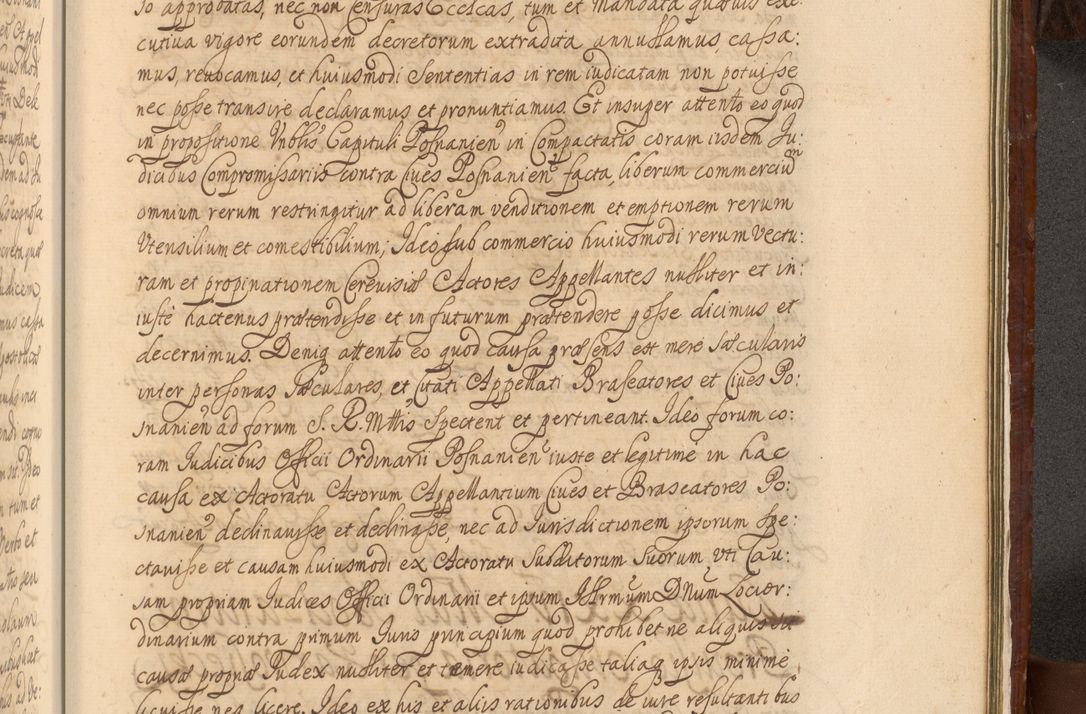 so approbatas, nec non censuras Ecclcas, tum et Mandata quævis exe:
cutiva vigore eorundem decretorum extradita annullamus, cassa:
mus, revocamus, et huiusmodi Sententias in rem iudicatam non potuisse
nec posse transire declaramus et pronuntiamus. Et insuper attento eo quod
in propositione Vnblis Capituli Posnanien in Compactatis coram iisdem Ju:
dicibus Compromissariis contra Cives Posnanien facta, liberum commercium
omnium rerum restringitur ad liberam venditionem et emptionem rerum
Vtensilium et comestibilium; Ideo sub commercio huiusmodi rerum Vectu:
ram et propinationem Cerevisiæ Actores Appellantes nulliter et in:
iuste hactenus prætendisse et in futurum prætendere posse dicimus et
decernimus. Deniq attento eo quod causa præsens est mere sæcularis
inter personas sæculares, et Citati Appellati Braseatores et Cives Po:
snanien ad forum S. R. Mttis Spectent et pertineant. Ideo forum co:
ram Judicibus Officii Ordinarii Posnanien iuste et legitime in hac
causa ex Actoratu Actorum Appellantium Cives et Braseatores Po:
snanien declinavisse et declinasse, nec ad Jurisdictionem ipsorum Spe:
ctavisse et causam huiusmodi ex Actoratu Subditorum Suorum, vti Cau:
sam propriam Judices Officii Ordinarii et ipsum Illrmum Dnum Locior:
dinarium contra primum Juris principium quod prohibet ne aliquis sit
causæ propriæ Judex nulliter et temere iudicasse taliaq ipsis minime
licuisse neq licere. Ideo ex his et aliis rationibus de iure resultantibus